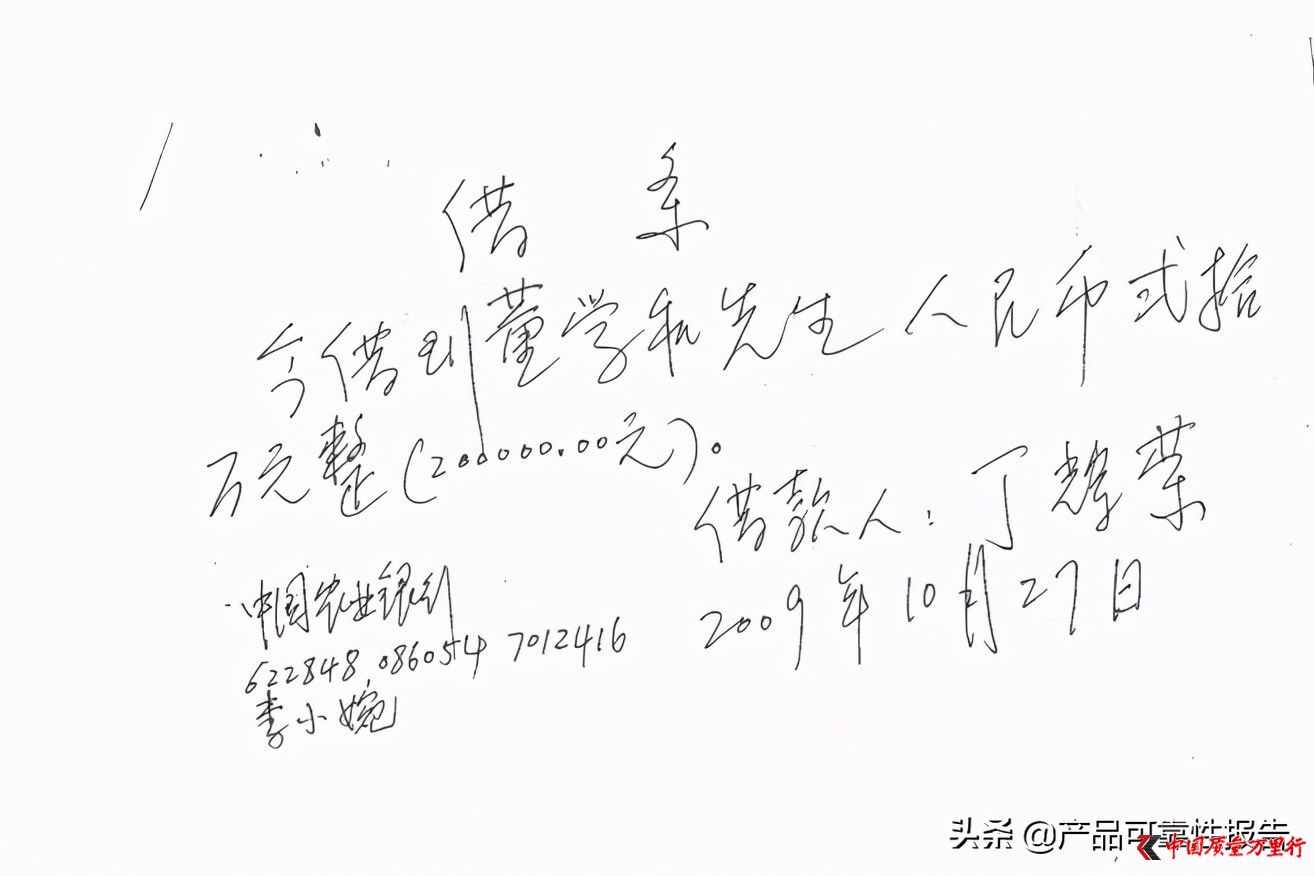 借 条
今借到董学和先生人民币弍拾
万元整(200000.00元)。
借款人:丁辉荣
2009年10月27日
中国农业银行
622848 0860547012416
李小婉
头条 @产品可靠性报告
中国质量万里行